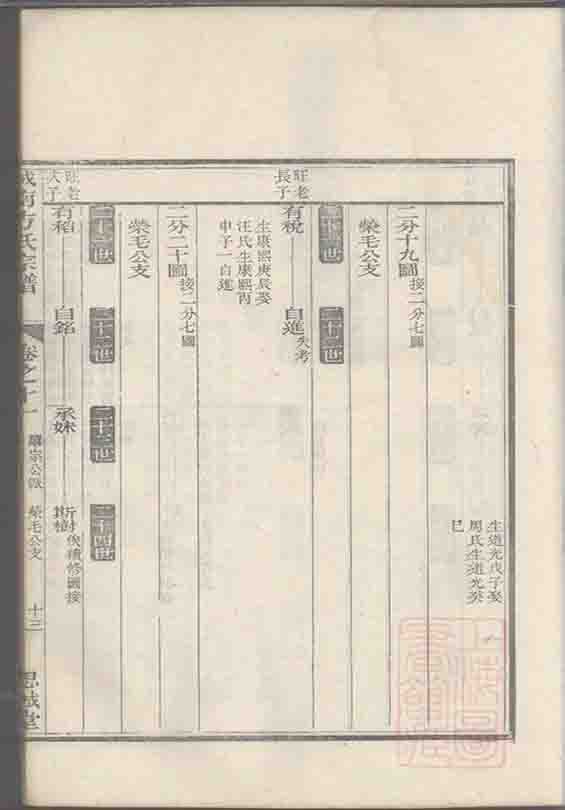 生道光戊子娶
周氏生道光癸
巳
二分十九圖接二分七圖
榮毛公支
二十一世
二十二世
旺老
長子
有稅
自進失考
生康熙庚辰娶
汪氏生康熙丙
申子一自進
二分二十圖接二分七圖
榮毛公支
二十一世
二十二世
二十三世
二十四世
旺老
次子
有稻
自銘
承妹
俟續修圖接
城南方氏宗譜
卷之十一
榮毛公支
十三
思誠堂
上海圖
書館藏